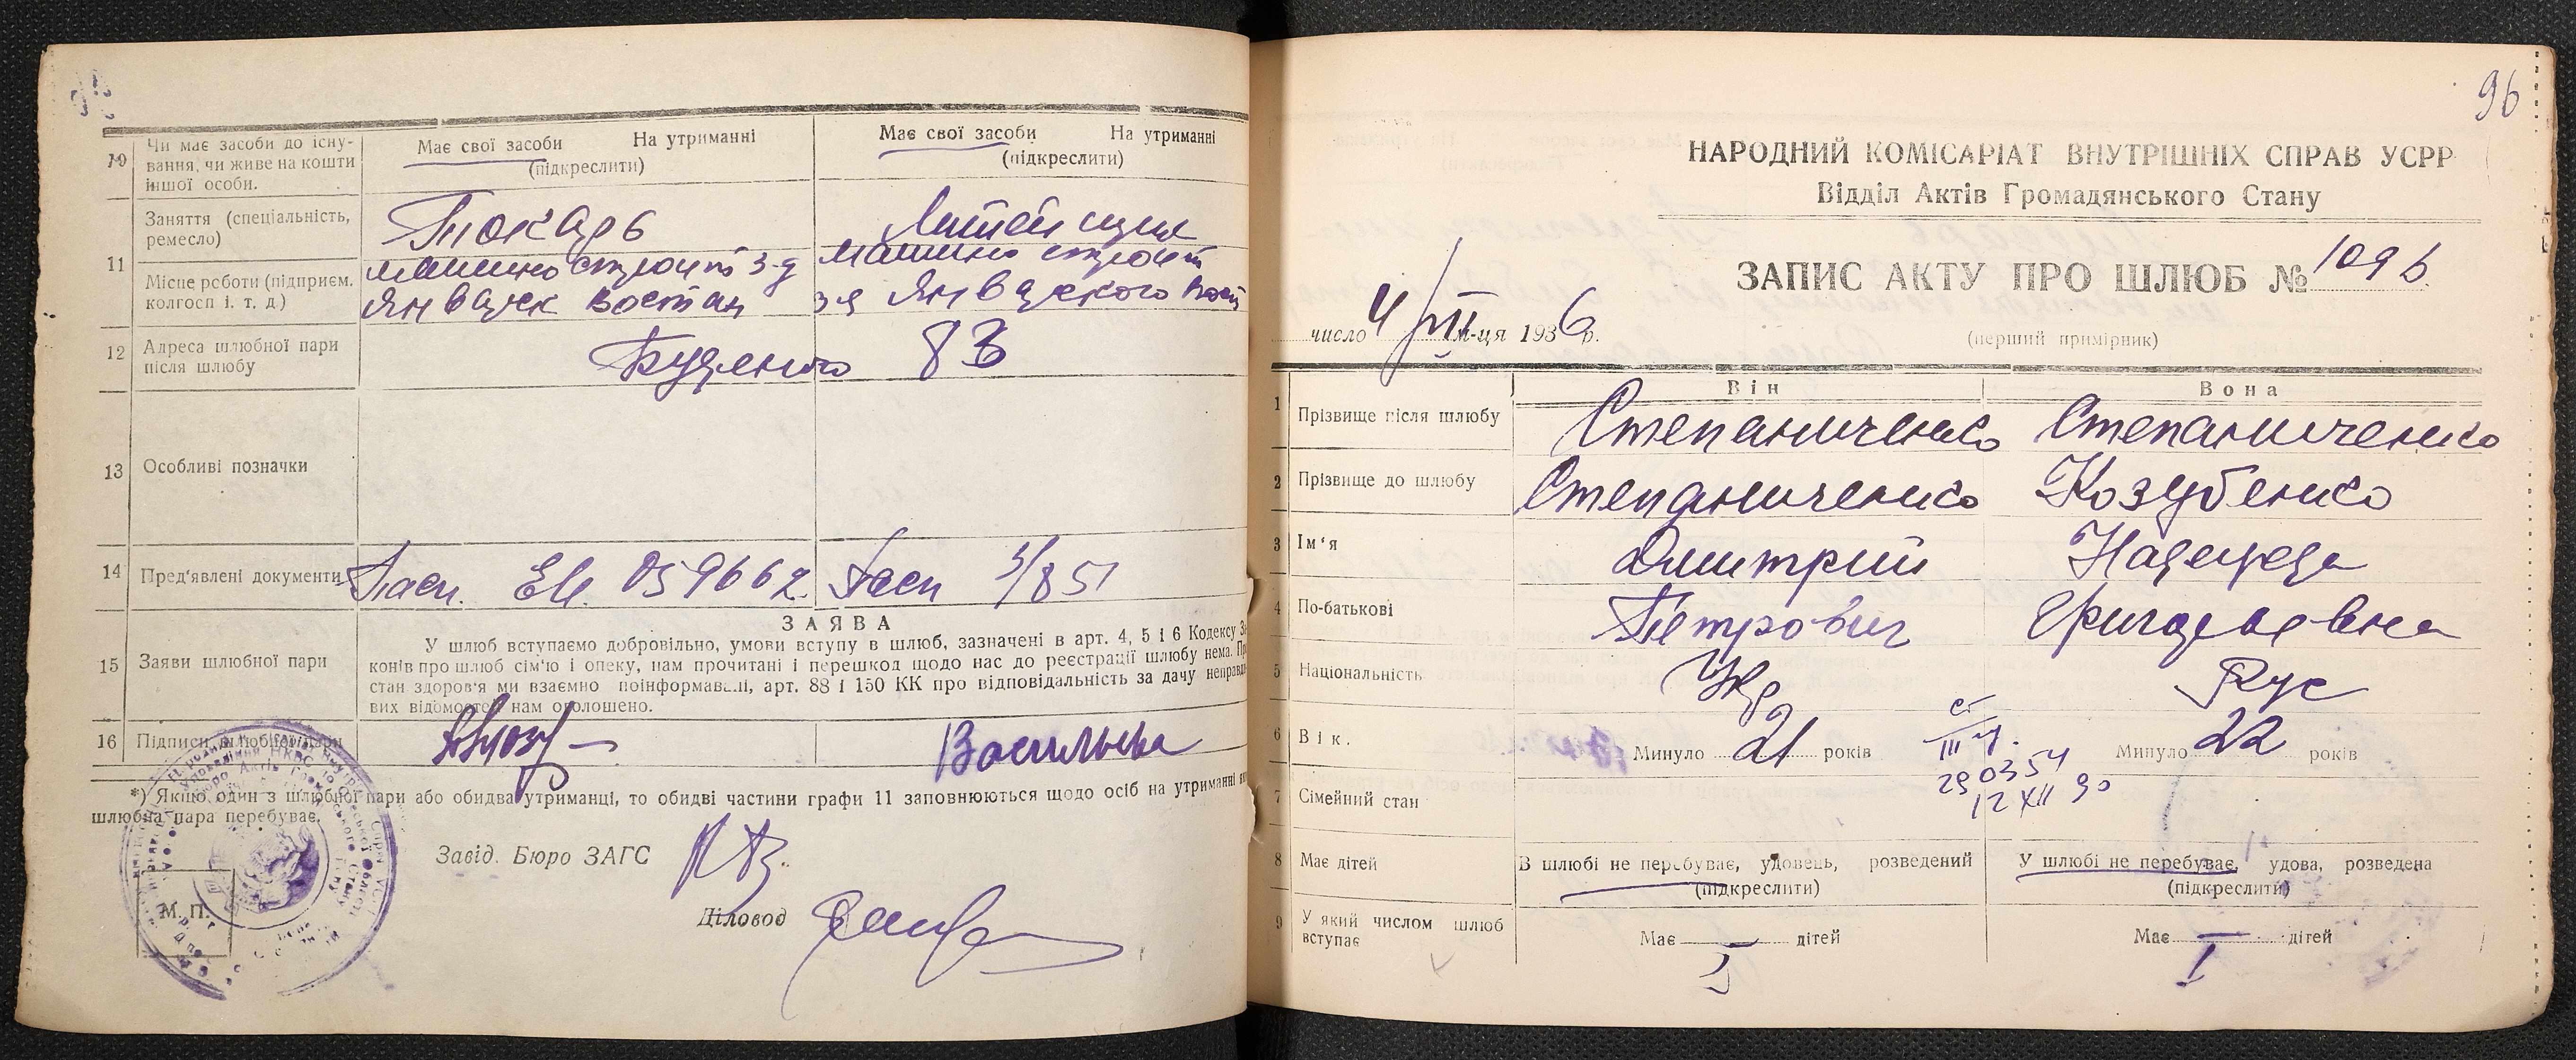 10 Чи має засоби до існу-
вання, чи живе на кошти
іншої особи.
Має свої засоби На утриманні
(підкреслити)
Має свої засоби На утриманні
(підкреслити)
11 Заняття (спеціальність,
ремесло)
Токарь
Місце роботи (підприєм.
колгосп і. т. д.)
машиностроит з-д
Январск востан
машино строит
з-д Январского Вост
12 Адреса шлюбної пари
після шлюбу
Буденого 83
13 Особливі позначки
14 Пред'явлені документи
Пасп. 059662
Пасп 851
ЗАЯВА
15 Заяви шлюбної пари
У шлюб вступаємо добровільно, умови вступу в шлюб, зазначені в арт. 4, 5 і 6 Кодексу За
конів про шлюб сім'ю і опеку, нам прочитані і перешкод щодо нас до реєстрації шлюбу нема. Пр
стан здоров'я ми взаємно поінформавані, арт. 88 і 150 КК про відповідальність за дачу неправди
вих відомостей нам оголошено.
16 Підписи шлюбної пари
*) Якщо один з шлюбної пари або обидва утриманці, то обидві частини графи 11 заповнюються щодо осіб на утриманні
шлюбна пара перебуває.
Завід. Бюро ЗАГС
Діловод
М. П.
96
НАРОДНИЙ КОМІСАРІАТ ВНУТРІШНІХ СПРАВ УСРР
Відділ Актів Громадянського Стану
ЗАПИС АКТУ ПРО ШЛЮБ № 1096
(перший примірник)
число 4/VII м-ця 1936 р.
Він Вона
1 Прізвище після шлюбу Степаниченко Степаниченко
2 Прізвище до шлюбу Степаниченко Козубенко
3 Ім'я Дмитрий Надежда
4 По-батькові Петрович Григорьевна
5 Національність Рус
6 Вік. Минуло 21 років Минуло 22 років
290354
12 XII 90
7 Сімейний стан
8 Має дітей
В шлюбі не перебуває, удовець, розведений
(підкреслити)
У шлюбі не перебуває, удова, розведена
(підкреслити)
9 У який числом шлюб
вступає
Має — дітей
I
Має — дітей
I